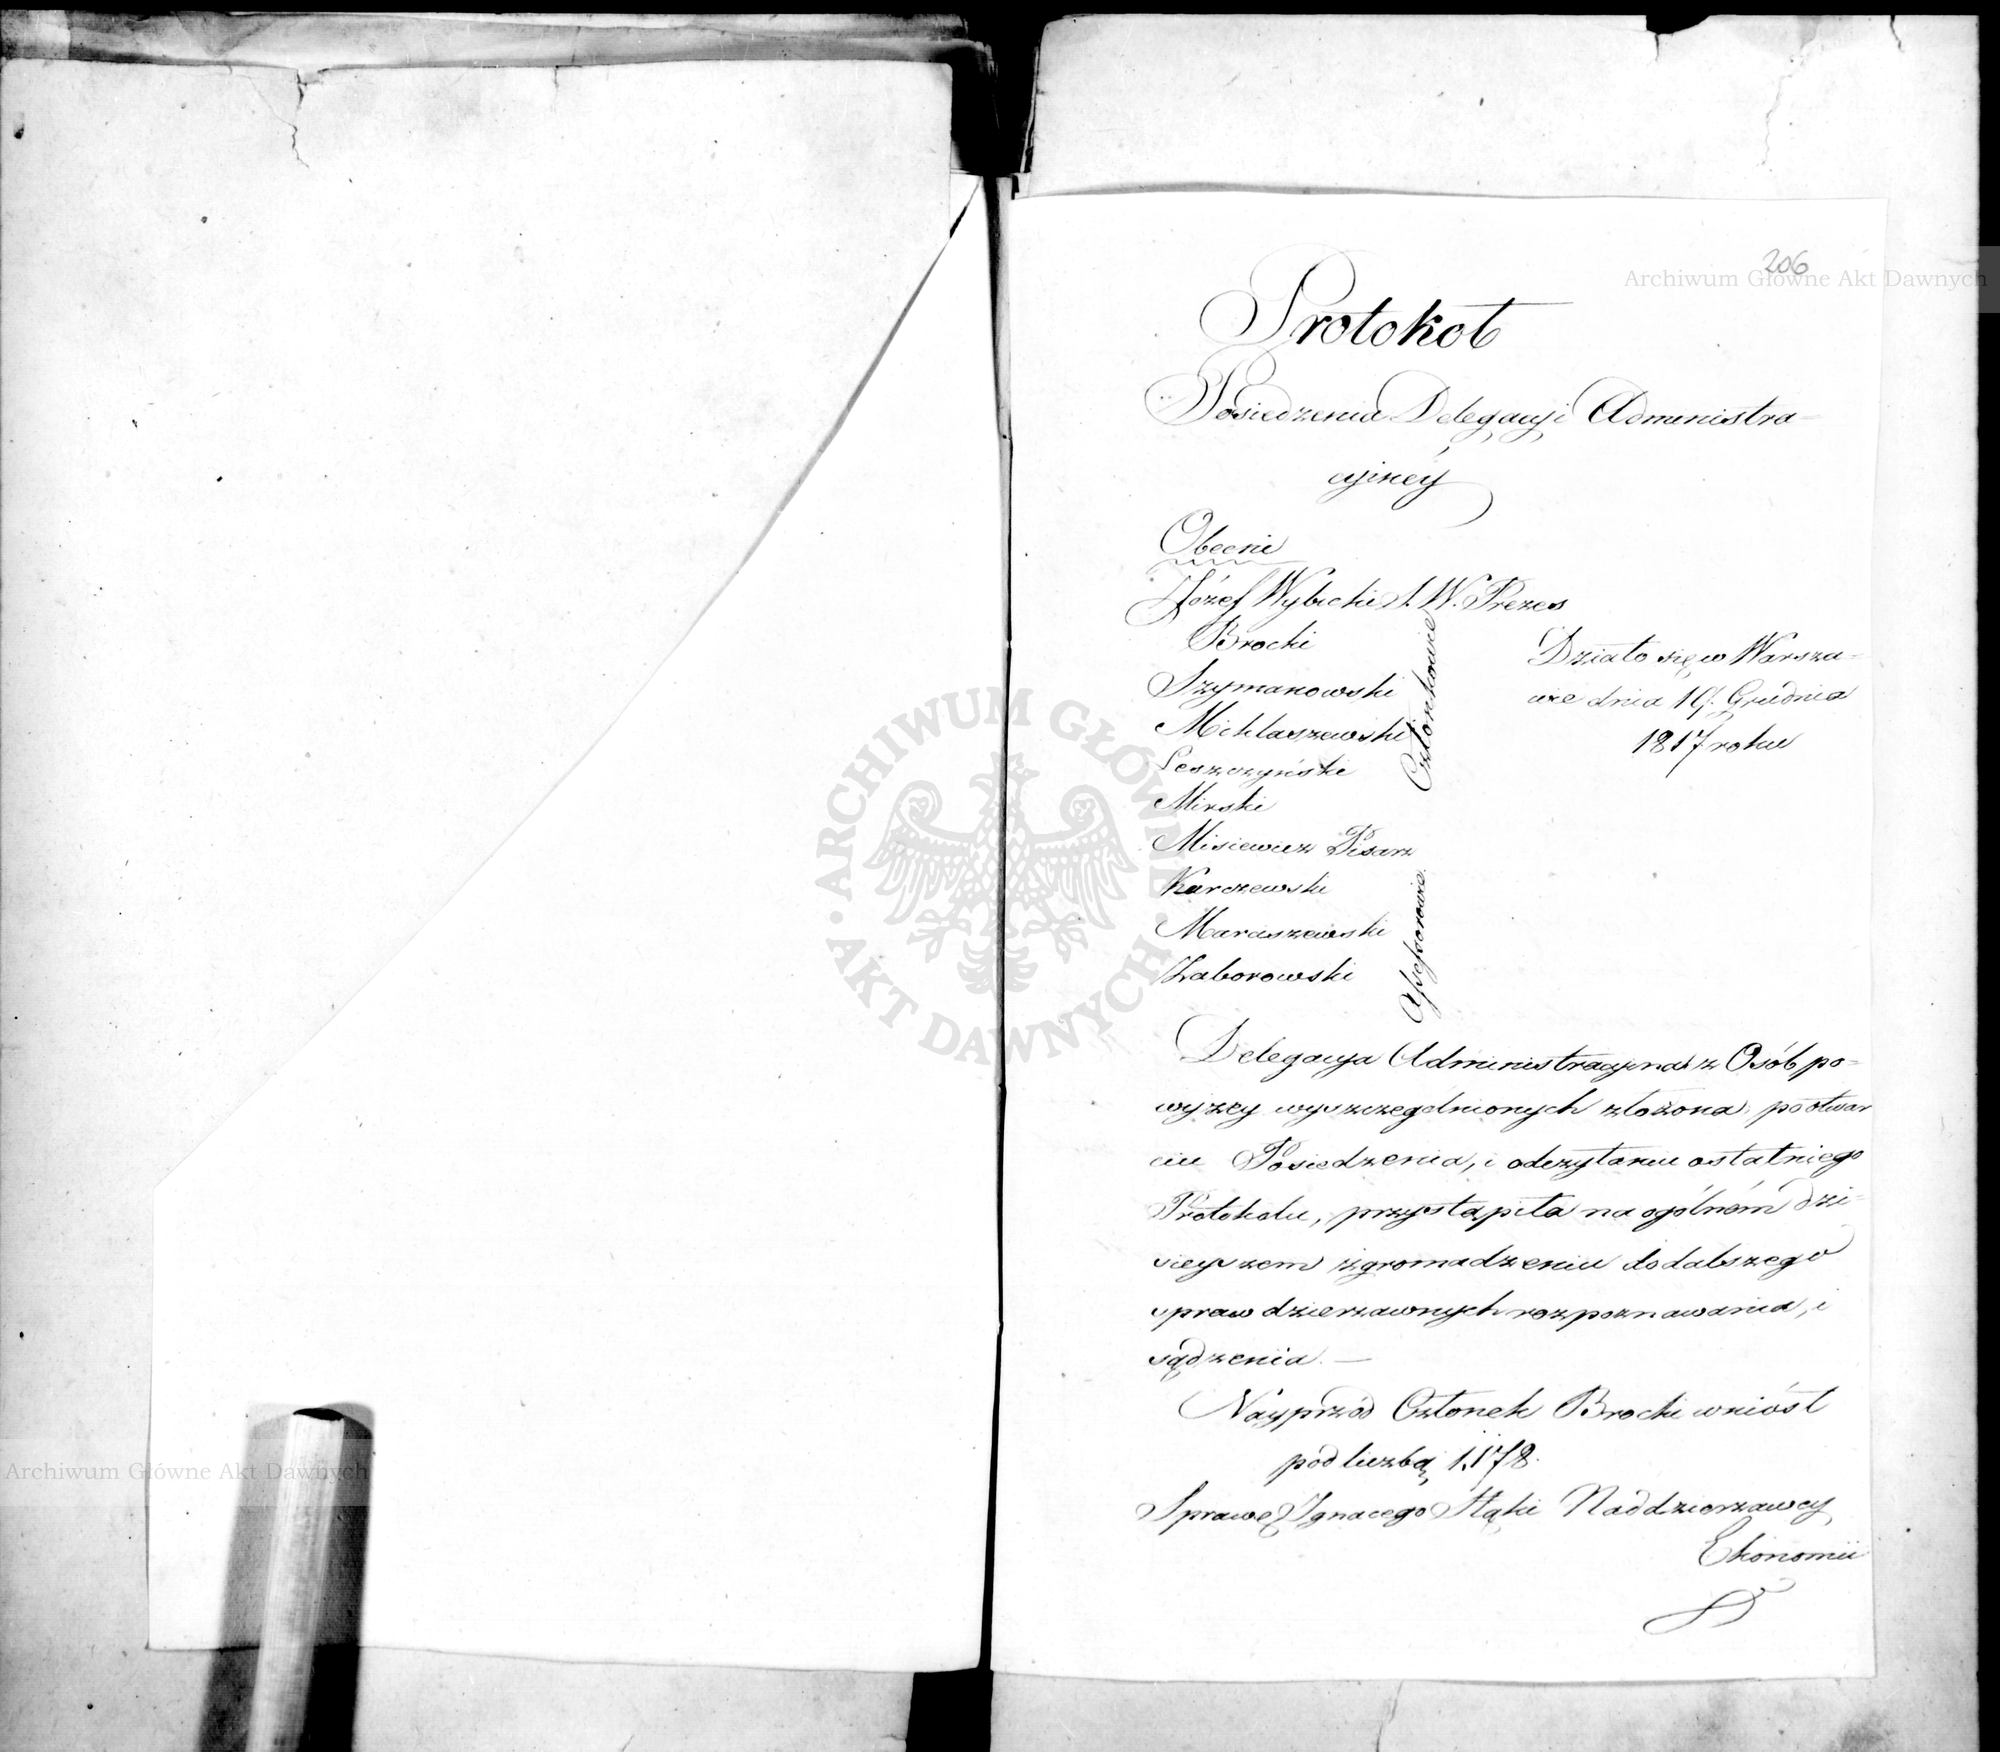 206
Archiwum Główne Akt Dawnych
Protokoł
Posiedzenia Delegacyi Administra=
cyjnéy
Obecni
Józef Wybicki S. W. Prezes
Brocki
Szymanowski
Miklaszewski
Leszczyński
Mirski
Członkowie
Misiewicz Pisarz
Karczewski
Maraszewski
Zaborowski
Assessorowie.
Działo się w Warsza=
wie dnia Grudnia
1817 roku
Delegacya Administracyina z Osób po=
wyżey wyszczególnionych złożona, po otwar
ciu Posiedzenia, i odczytaniu ostatniego
Protokołu, przystąpiła na ogólném dzi=
sieyszem zgromadzeniu do dalszego
spraw dzierzawnych rozpoznawania, i
sądzenia. —
Nayprzód Członek Brocki wniósł
pod liczbą 1,178.
Sprawę Ignacego Naddzierzawcy
Ekonomii
ARCHIWUM GŁÓWNE
AKT DAWNYCH
Archiwum Główne Akt Dawnych